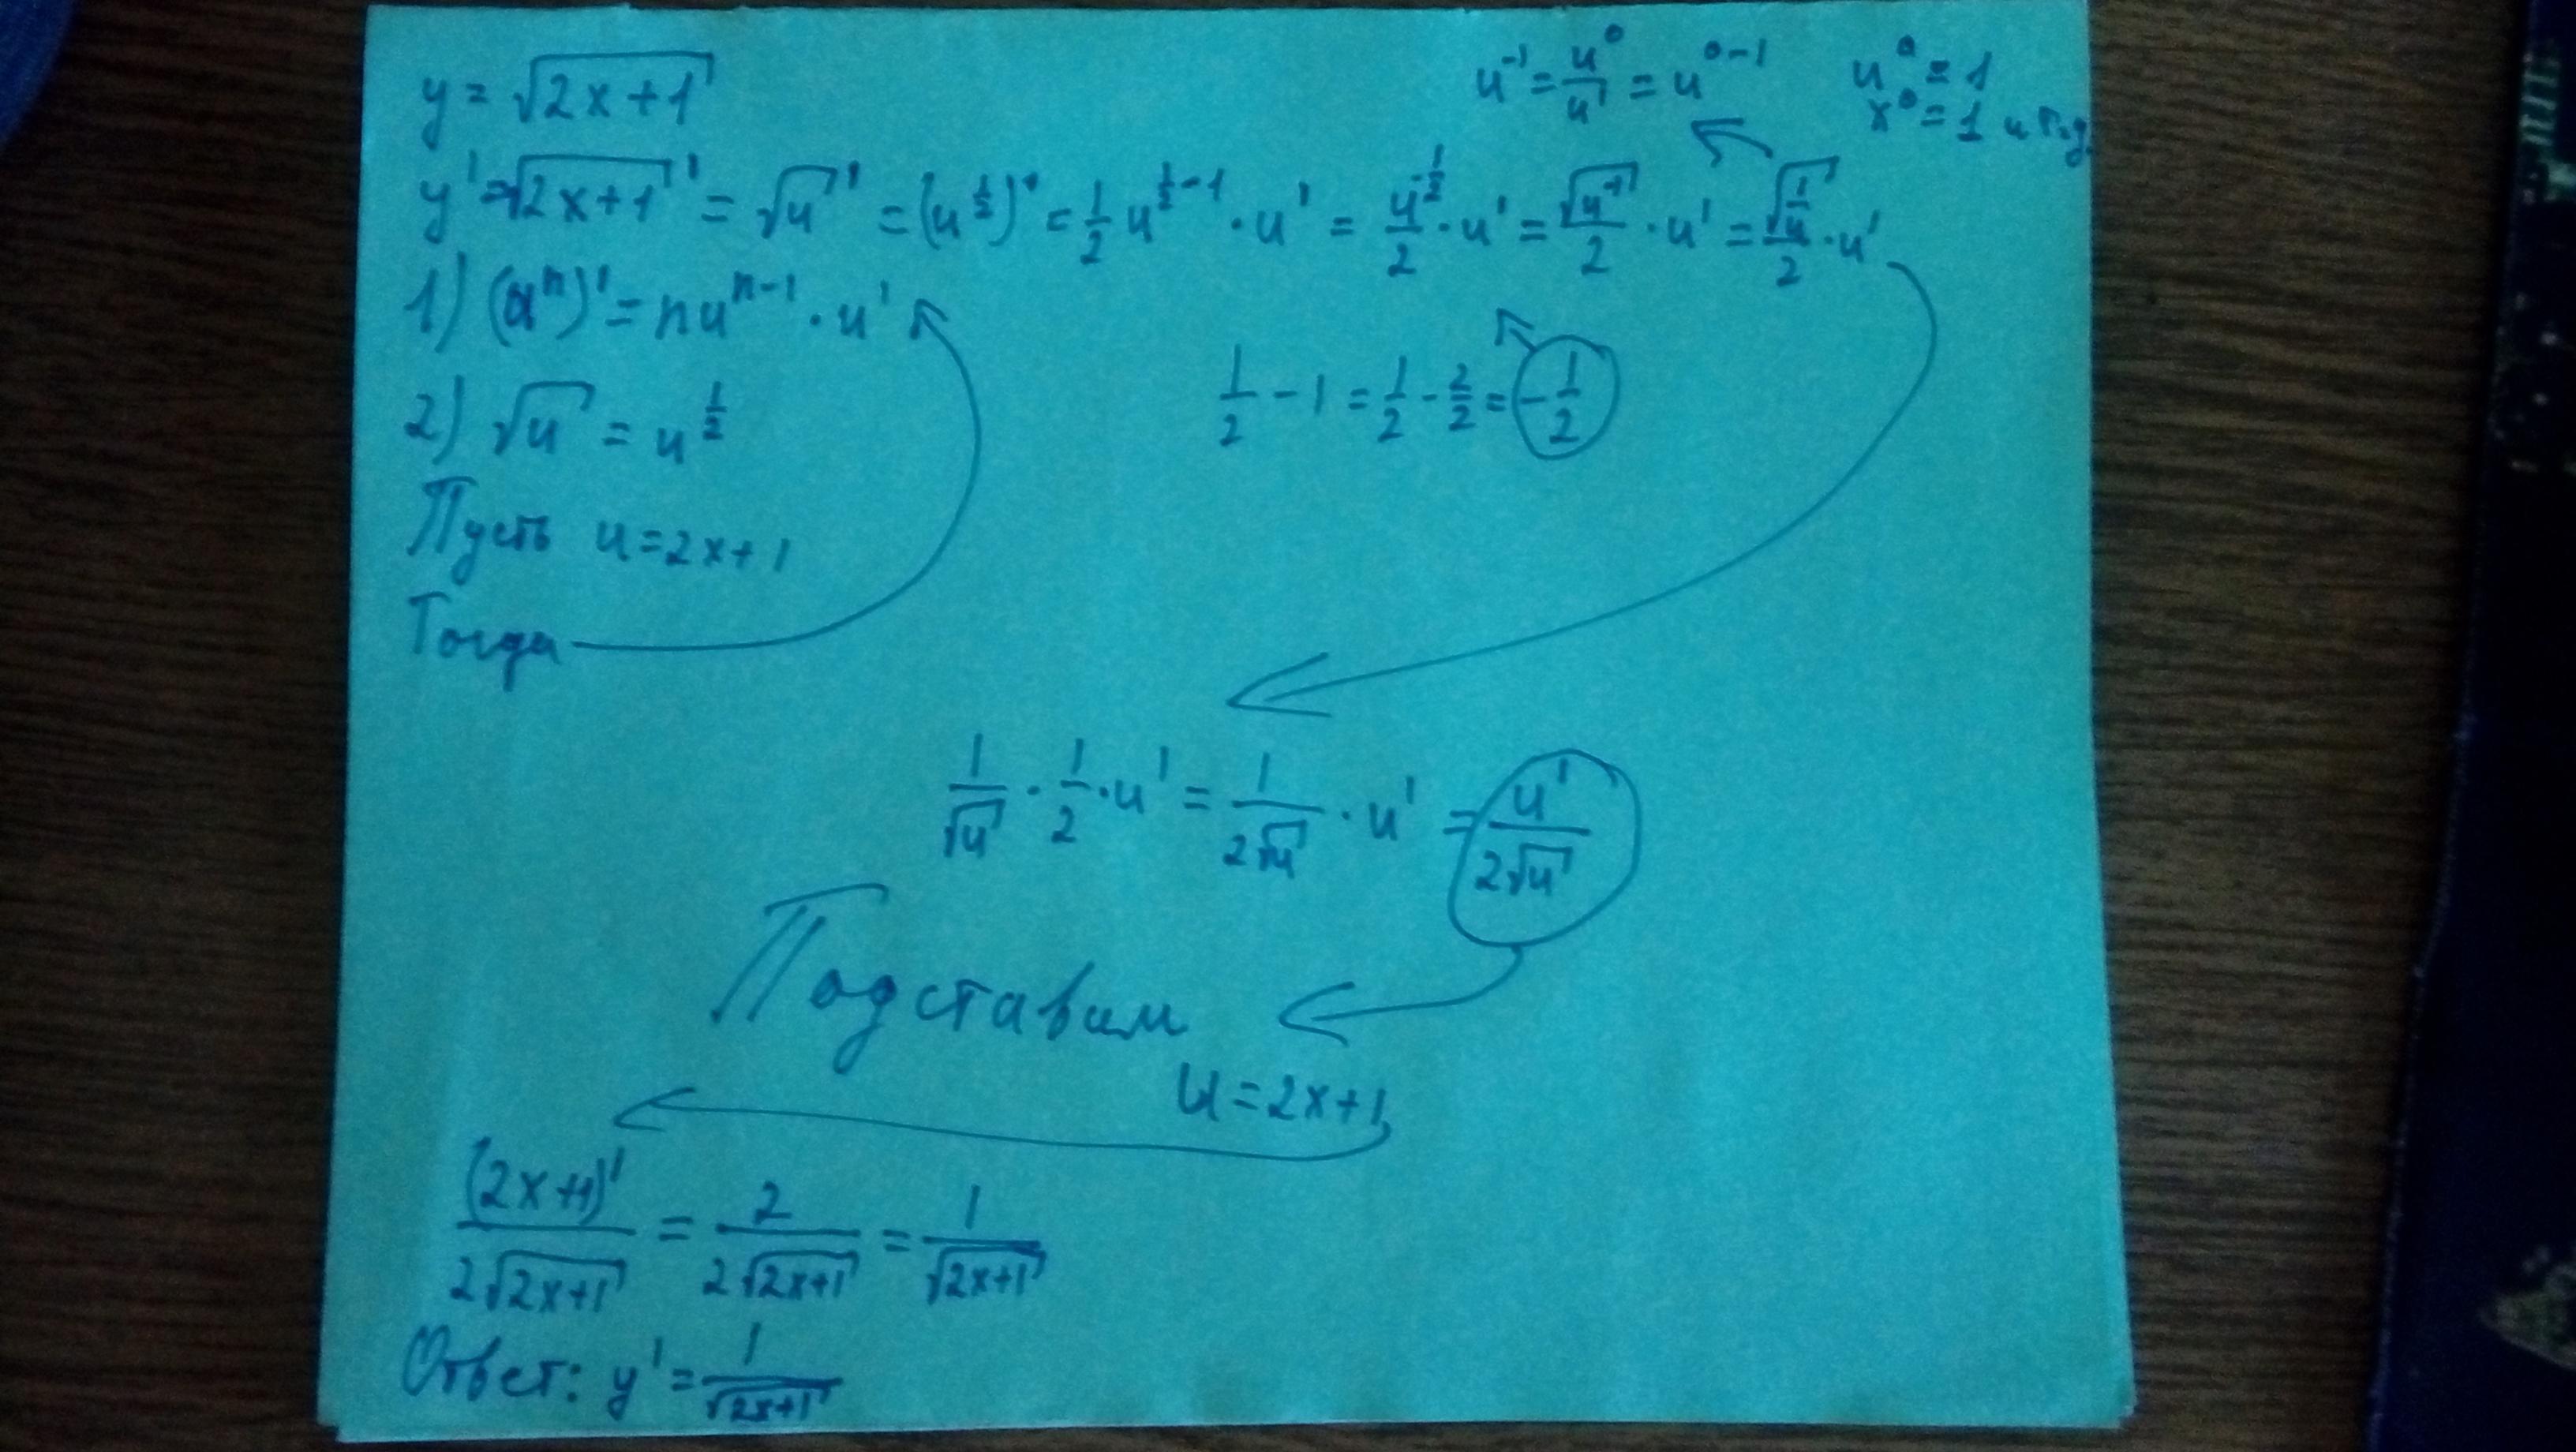 y = √(2x+1)
u⁻¹ = u⁰/u¹ = u⁰⁻¹
u⁰ = 1
x⁰ = 1 и т.д.
y' = √(2x+1)' = √u' = (u^(1/2))' = 1/2 u^(1/2-1) · u' = u^(-1/2)/2 · u' = √(u⁻¹)/2 · u' = √(1/u)/2 · u'
1) (uⁿ)' = nuⁿ⁻¹ · u'
1/2 - 1 = 1/2 - 2/2 = -1/2
2) √u = u^(1/2)
Пусть u = 2x+1
Тогда
1/√u · 1/2 · u' = 1/(2√u) · u' = u'/(2√u)
Подставим
u = 2x+1
(2x+1)'/(2√(2x+1)) = 2/(2√(2x+1)) = 1/√(2x+1)
Ответ: y' = 1/√(2x+1)